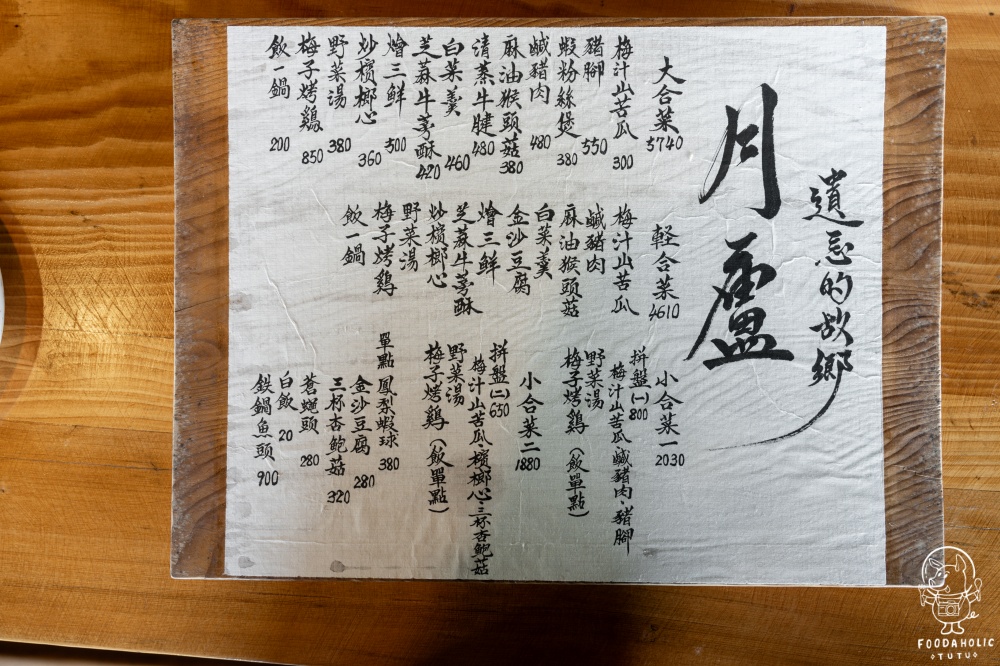 遺忘的故鄉
月廬
大合菜 5740
梅汁山苦瓜 300
豬腳 550
蝦粉絲煲 380
鹹豬肉 480
麻油猴頭菇 380
清蒸牛腱 480
白菜羹 460
芝蔴牛蒡酥 420
燴三鮮 500
炒檳榔心 360
野菜湯 380
梅子烤鷄 850
飯一鍋 200
軽合菜 4610
梅汁山苦瓜
鹹豬肉
麻油猴頭菇
白菜羹
金沙豆腐
燴三鮮
芝蔴牛蒡酥
炒檳榔心
野菜湯
梅子烤鷄
飯一鍋
小合菜一 2030
拼盤(一) 800
梅汁山苦瓜、鹹豬肉、豬腳
野菜湯
梅子烤鷄(飯單點)
小合菜二 1880
拼盤(二) 650
梅汁山苦瓜、檳榔心、三杯杏鮑菇
野菜湯
梅子烤鷄(飯單點)
單點
鳳梨蝦球 380
金沙豆腐 280
三杯杏鮑菇 320
蒼蠅頭 280
白飯 20
鉄鍋魚頭 900
FOODAHOLIC
TUTU